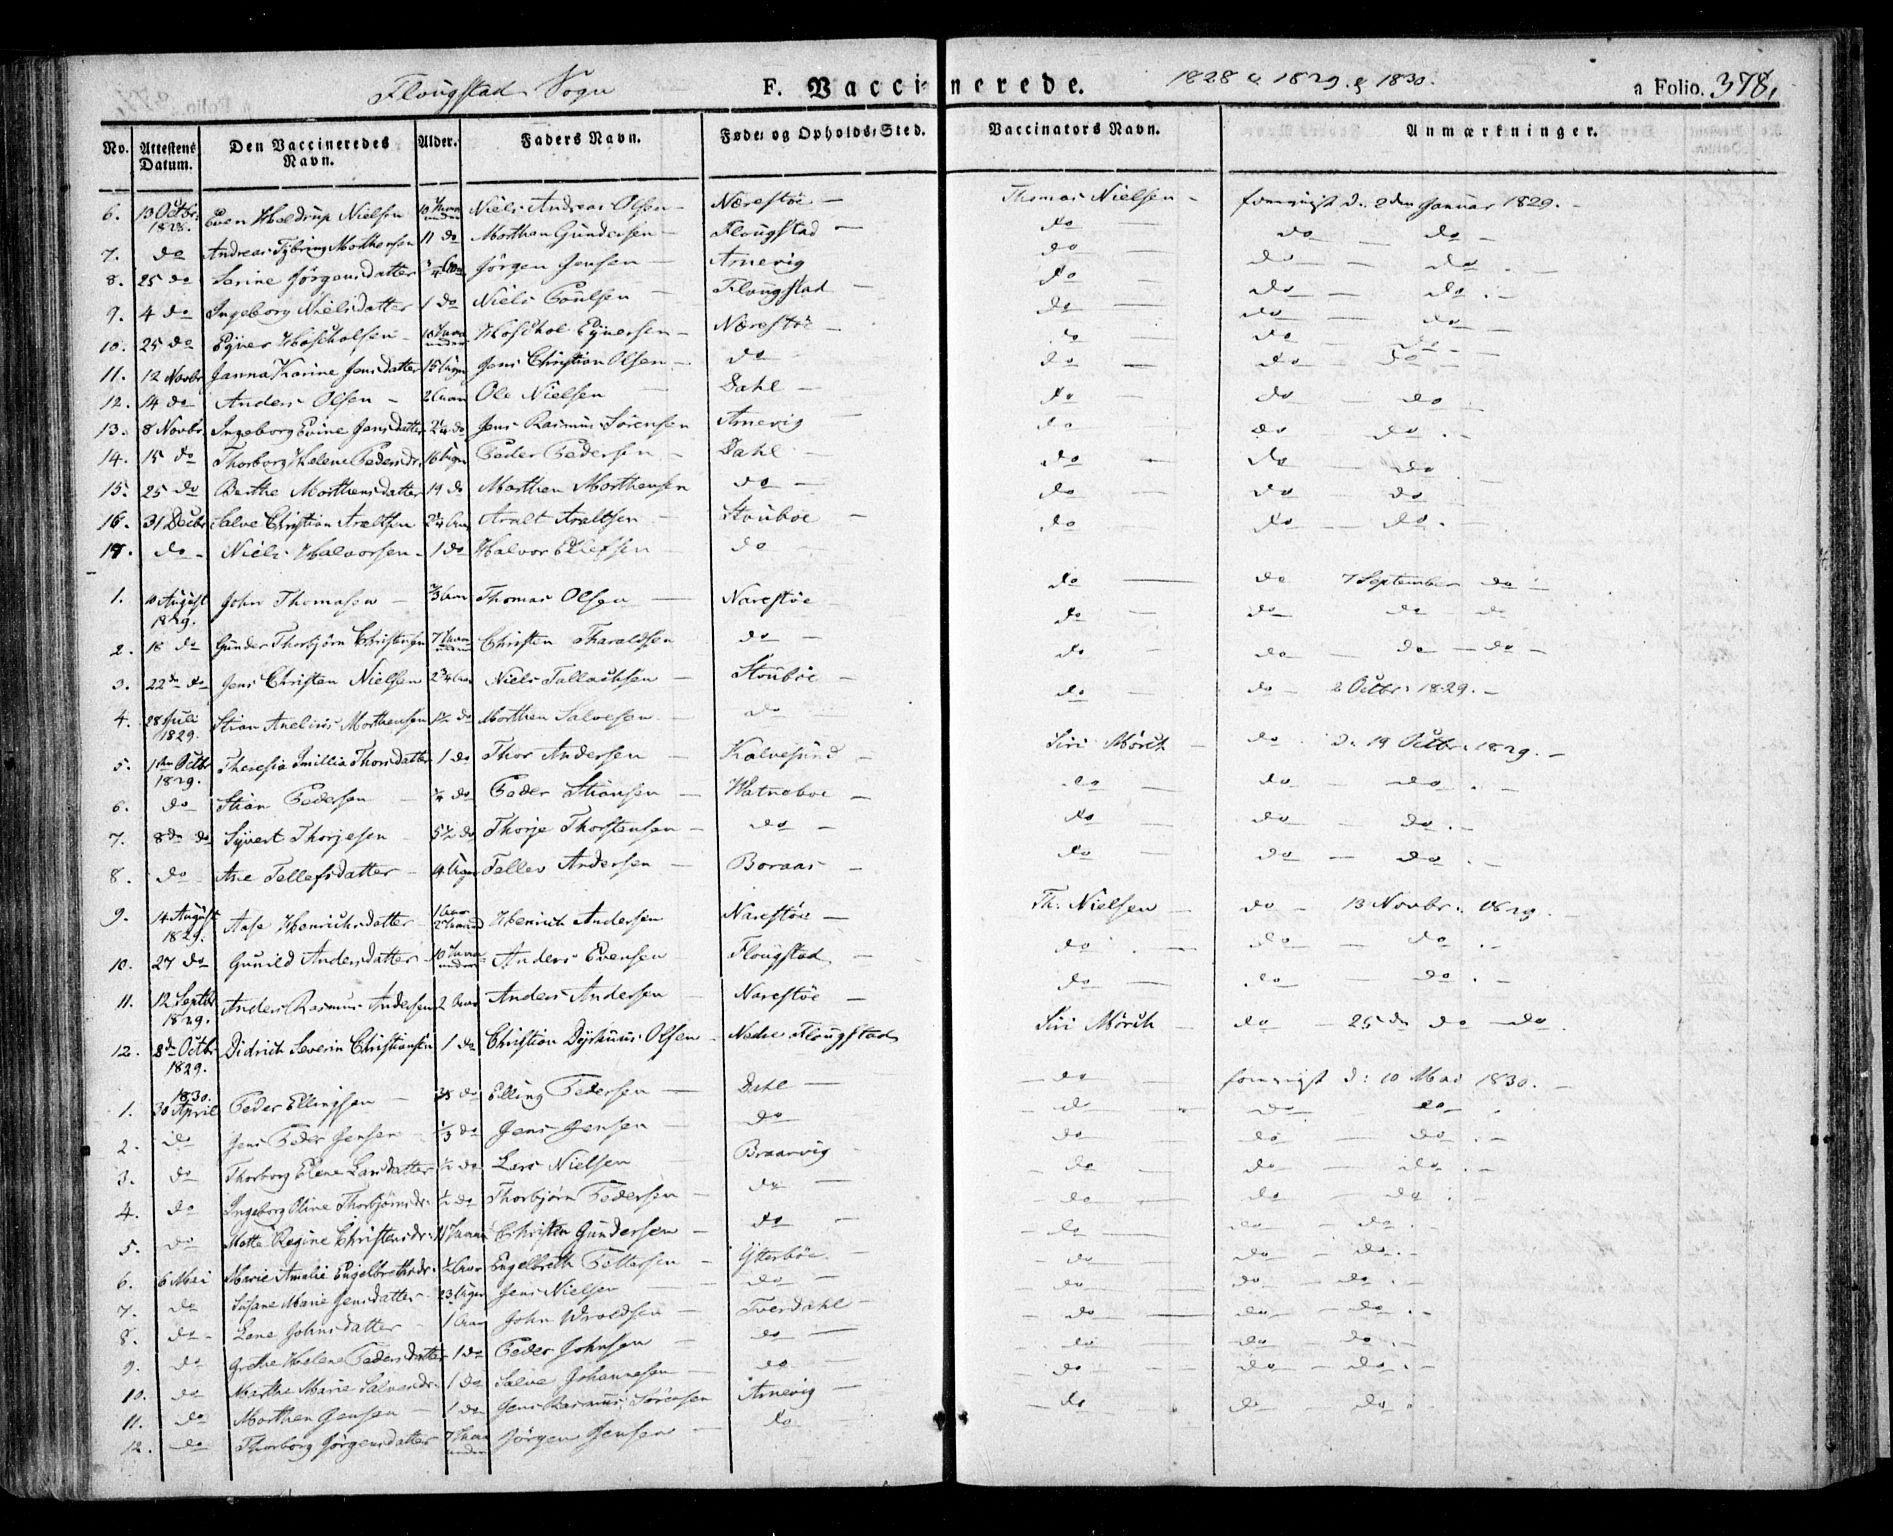 Flougstad Sogn F. Vaccinerede. 1828 & 1829 & 1830. a Folio. 378,
No. Attestens Datum. Den Vaccineredes Navn. Alder. Faders Navn. Føde- og Opholds-Sted. Vaccinators Navn. Anmærkninger.
6. 13 Octbr 1828. Even Nielsen 10 Niels Andreas Olsen Nærestöe Thomas Nielsen d. 2den Januar 1829.
7. do Andreas Morthensen 11 do Morthen Gundersen Flougstad do do do
8. 25 do Serine Jörgensdatter 3/4 Aar Jörgen Jensen Arnevig do do do
9. 4 do Ingeborg Nielsdatter 1 do Niels Poulsen Flougstad do do do
10. 25 do Eyver 10 Eyversen Nærestöe do do do
11. 12 Novbr Janna Karine Jensdatter 15 Uger Jens Christian Olsen do do do do
12. 14 do Anders Olsen 2 Aar Ole Nielsen Dahl do do do
13. 8 Novbr Ingeborg Evine Jensdatter 2 1/4 do Jens Rasmus Sörensen Arnevig do do do
14. 15 do Thorborg Helene Pedersdr. 16 Uger Peder Pedersen Dahl do do do
15. 25 do Berthe Morthensdatter 19 do Morthen Morthensen do do do do
16. 31 Decbr Salve Christian Araltsen Aralt Araltsen Stouböe do do do
17. do Niels Halvorsen 1 do Halvor do do do do
1. 10 August 1829. John Thomasen Aar Thomas Olsen Narestöe do do 7 September do
2. 18 do Gunder Thorbjörn Christensen 7 Christen Tharaldsen do do do do do
3. 22de do Jens Christen Nielsen 2 3/4 Aar Niels Tallachsen Stouböe do do do do
4. 28 Juli 1829. Stian Anelius Morthensen 1 1/2 do Morthen Salvesen do do do 2 Octbr. 1829.
5. 1ste Octbr 1829. Theresia Emillia Thorsdatter 1 do Thor Andersen Kalvesund Siri Mörch do d. 19 Octbr. 1829.
6. do Stian Pedersen 1/4 do Peder Stiansen Watneboe do do do
7. 8de do Syvert Thorjesen 5 1/2 do Thorje Thorstensen do do do do
8. do Ane Tellefsdatter 4 Uger Tellev Andersen Boraas do do do
9. 14 August 1829. Aase Henrichsdatter 1 Aar Henrich Andersen Narestöe Th. Nielsen do 13 Novbr. 1829.
10. 27 do Gunild Andersdatter 10 Anders Evensen Flougstad do do do
11. 12 Septbr 1829. Anders Rasmus Andersen 2 Aar Anders Andersen Narestöe do do do
12. 8de Octbr 1829. Didrich Severin Christiansen 1 do Christian Olsen Nedre Flougstad Siri Mörch do 25de do do
1. 1830. 30 April Peder Ellingsen do Elling Pedersen Dahl do d: 10 Mai 1830.
2. do Jens Peder Jensen 1/3 do Jens Jensen do do do do
3. do Thorborg Elene Larsdatter 1/2 do Lars Nielsen Braarvig do do do
4. do Ingeborg Oline Thorbjörnsdr. 1/2 do Thorbjörn Pedersen do do do do
5. do Mette Regine Christensdr. 11 Christen Gundersen do do do do
6. 6 Mai Marie Amalie Engelbrethsdr. Aar Engelbreth Pettersen Ytterböe do do do
7. do Susane Marie Jensdatter 23 Uger Jens Nielsen do do do do
8. do Lene Johnsdatter 1 Aar John Tverdahl do do do
9. do Grethe Helene Pedersdatter 1 do Peder Johnsen do do do do
10. do Marthe Marie Salvesdr. 1 do Salve Johannesen do do do do
11. do Morthen Jensen 1 do Jens Rasmus Sörensen Arnevig do do do
12. do Thorborg Jörgensdatter 7 Jörgen Jensen do